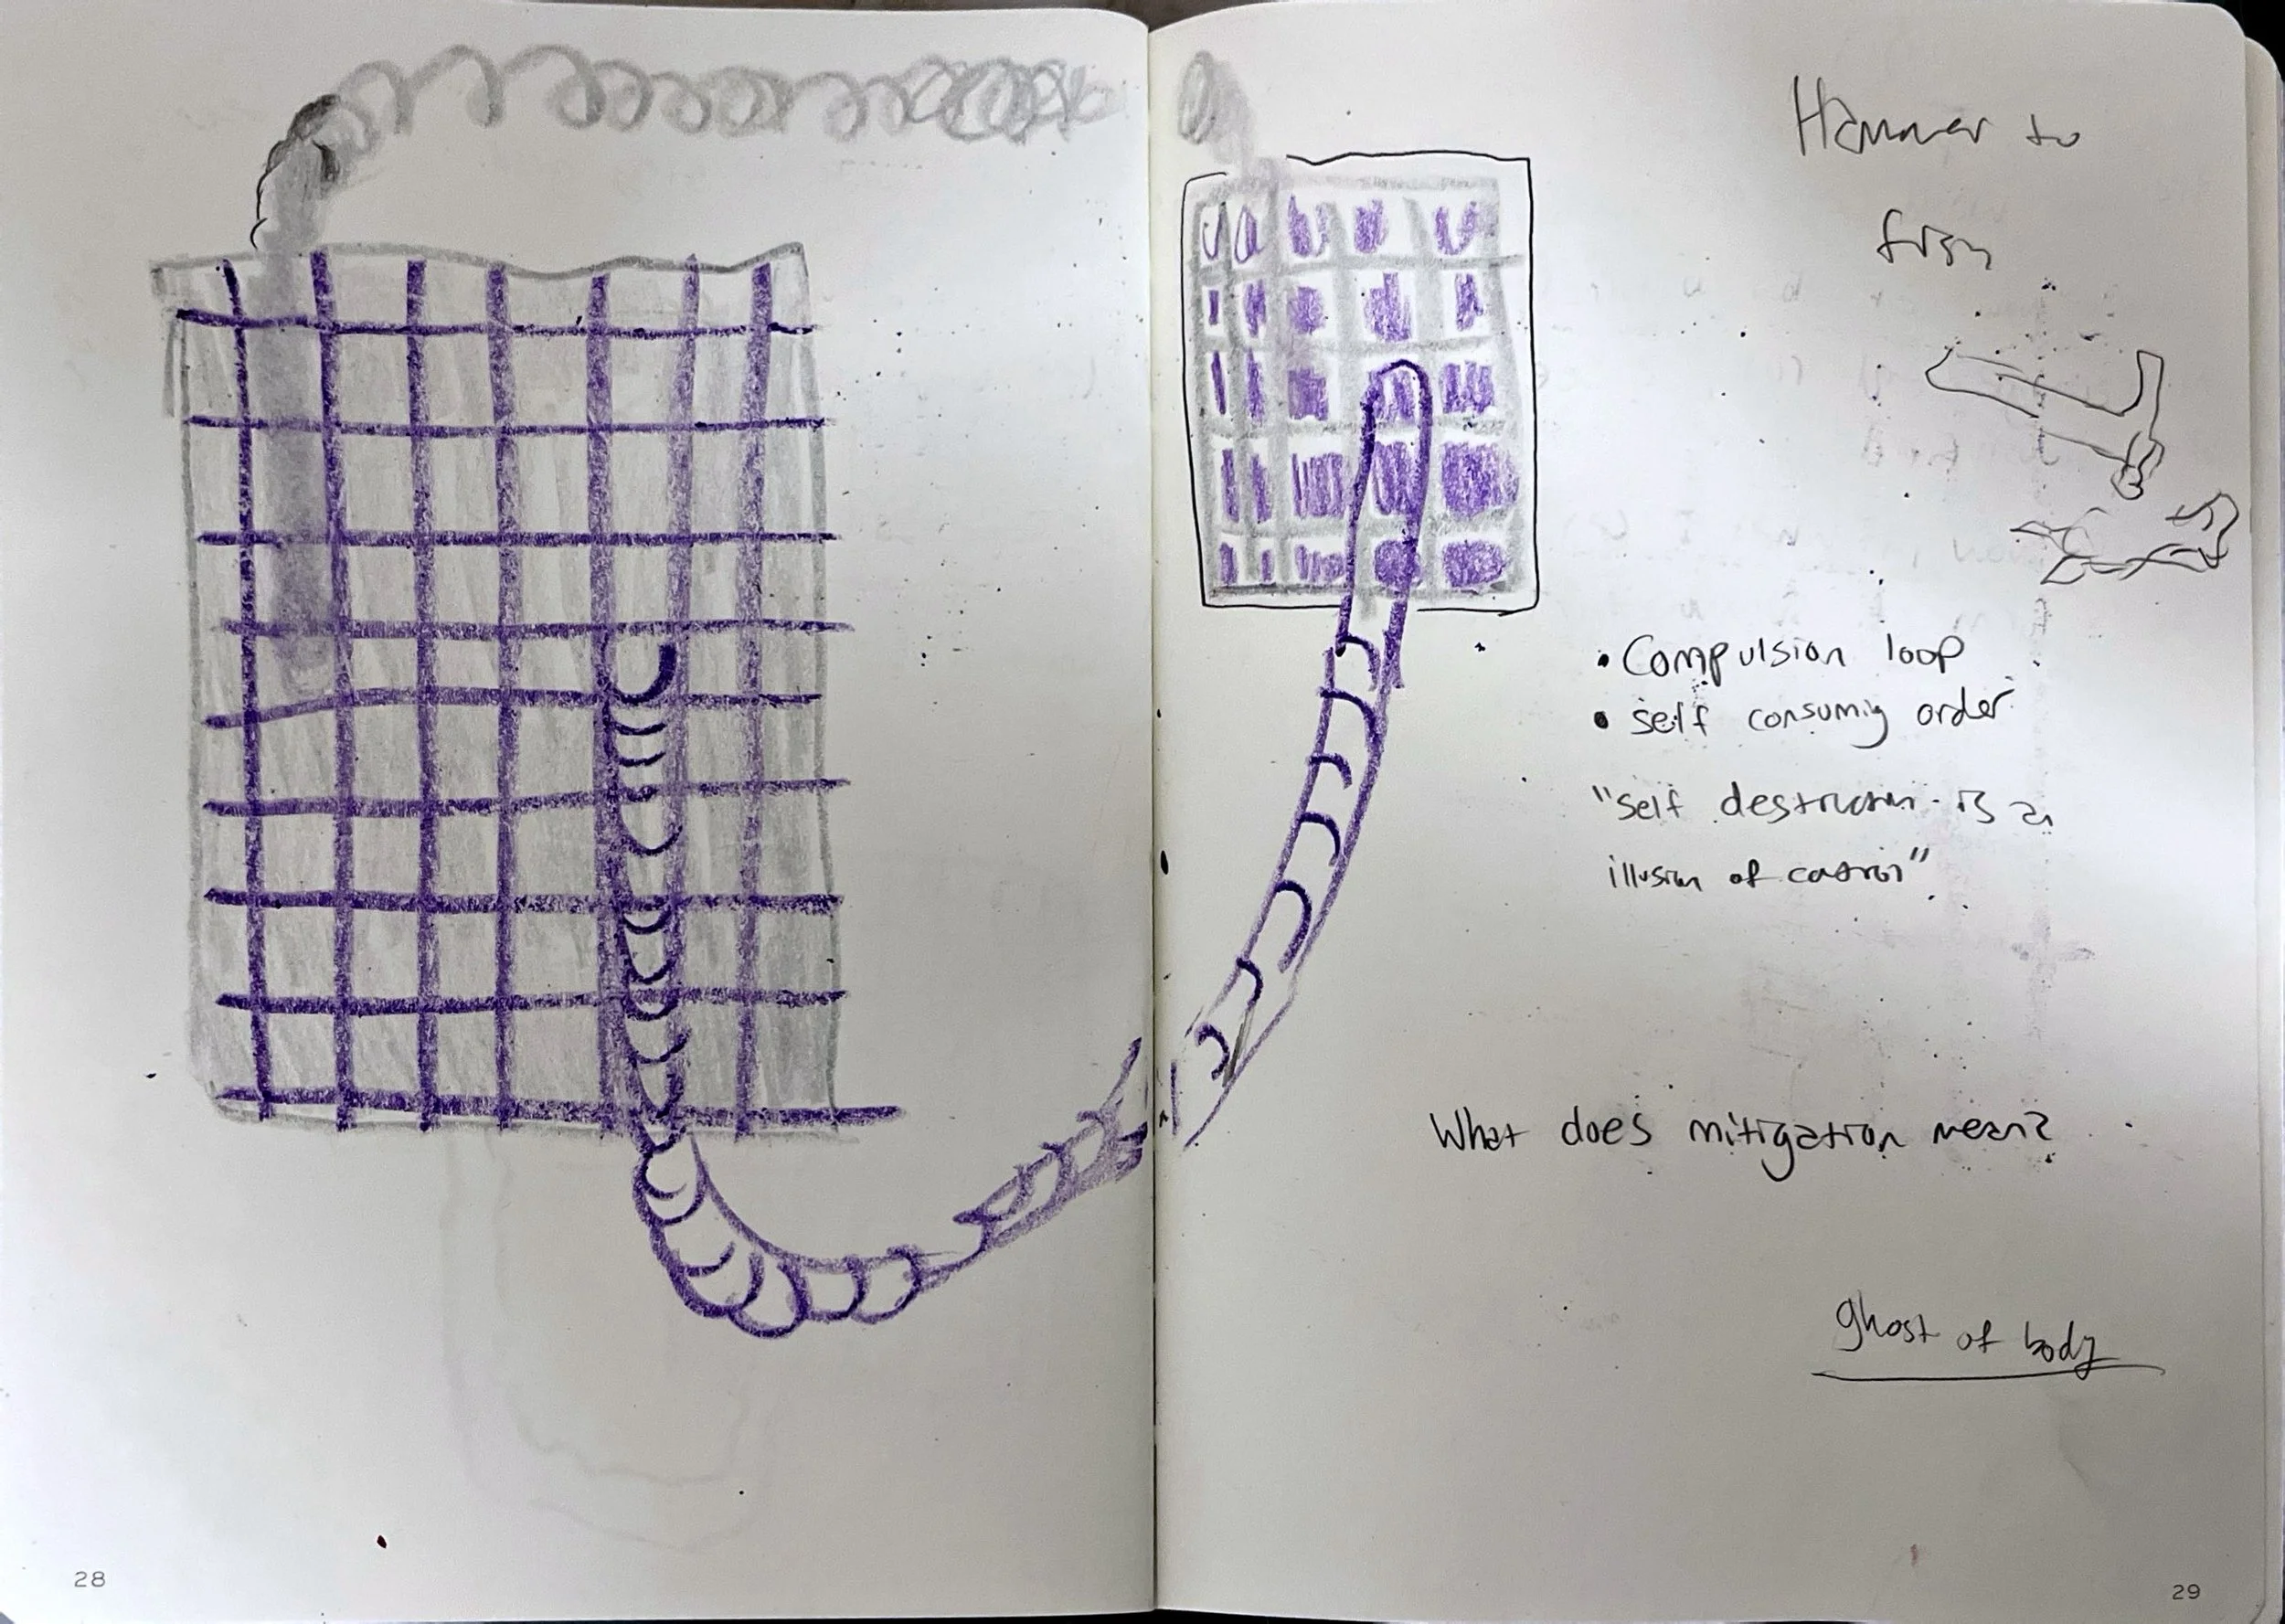 Hammer to
• Compulsion loop
• self consumig order
"self destructon is a
illusion of control"
What does mitigation mean?
ghost of body
28
29